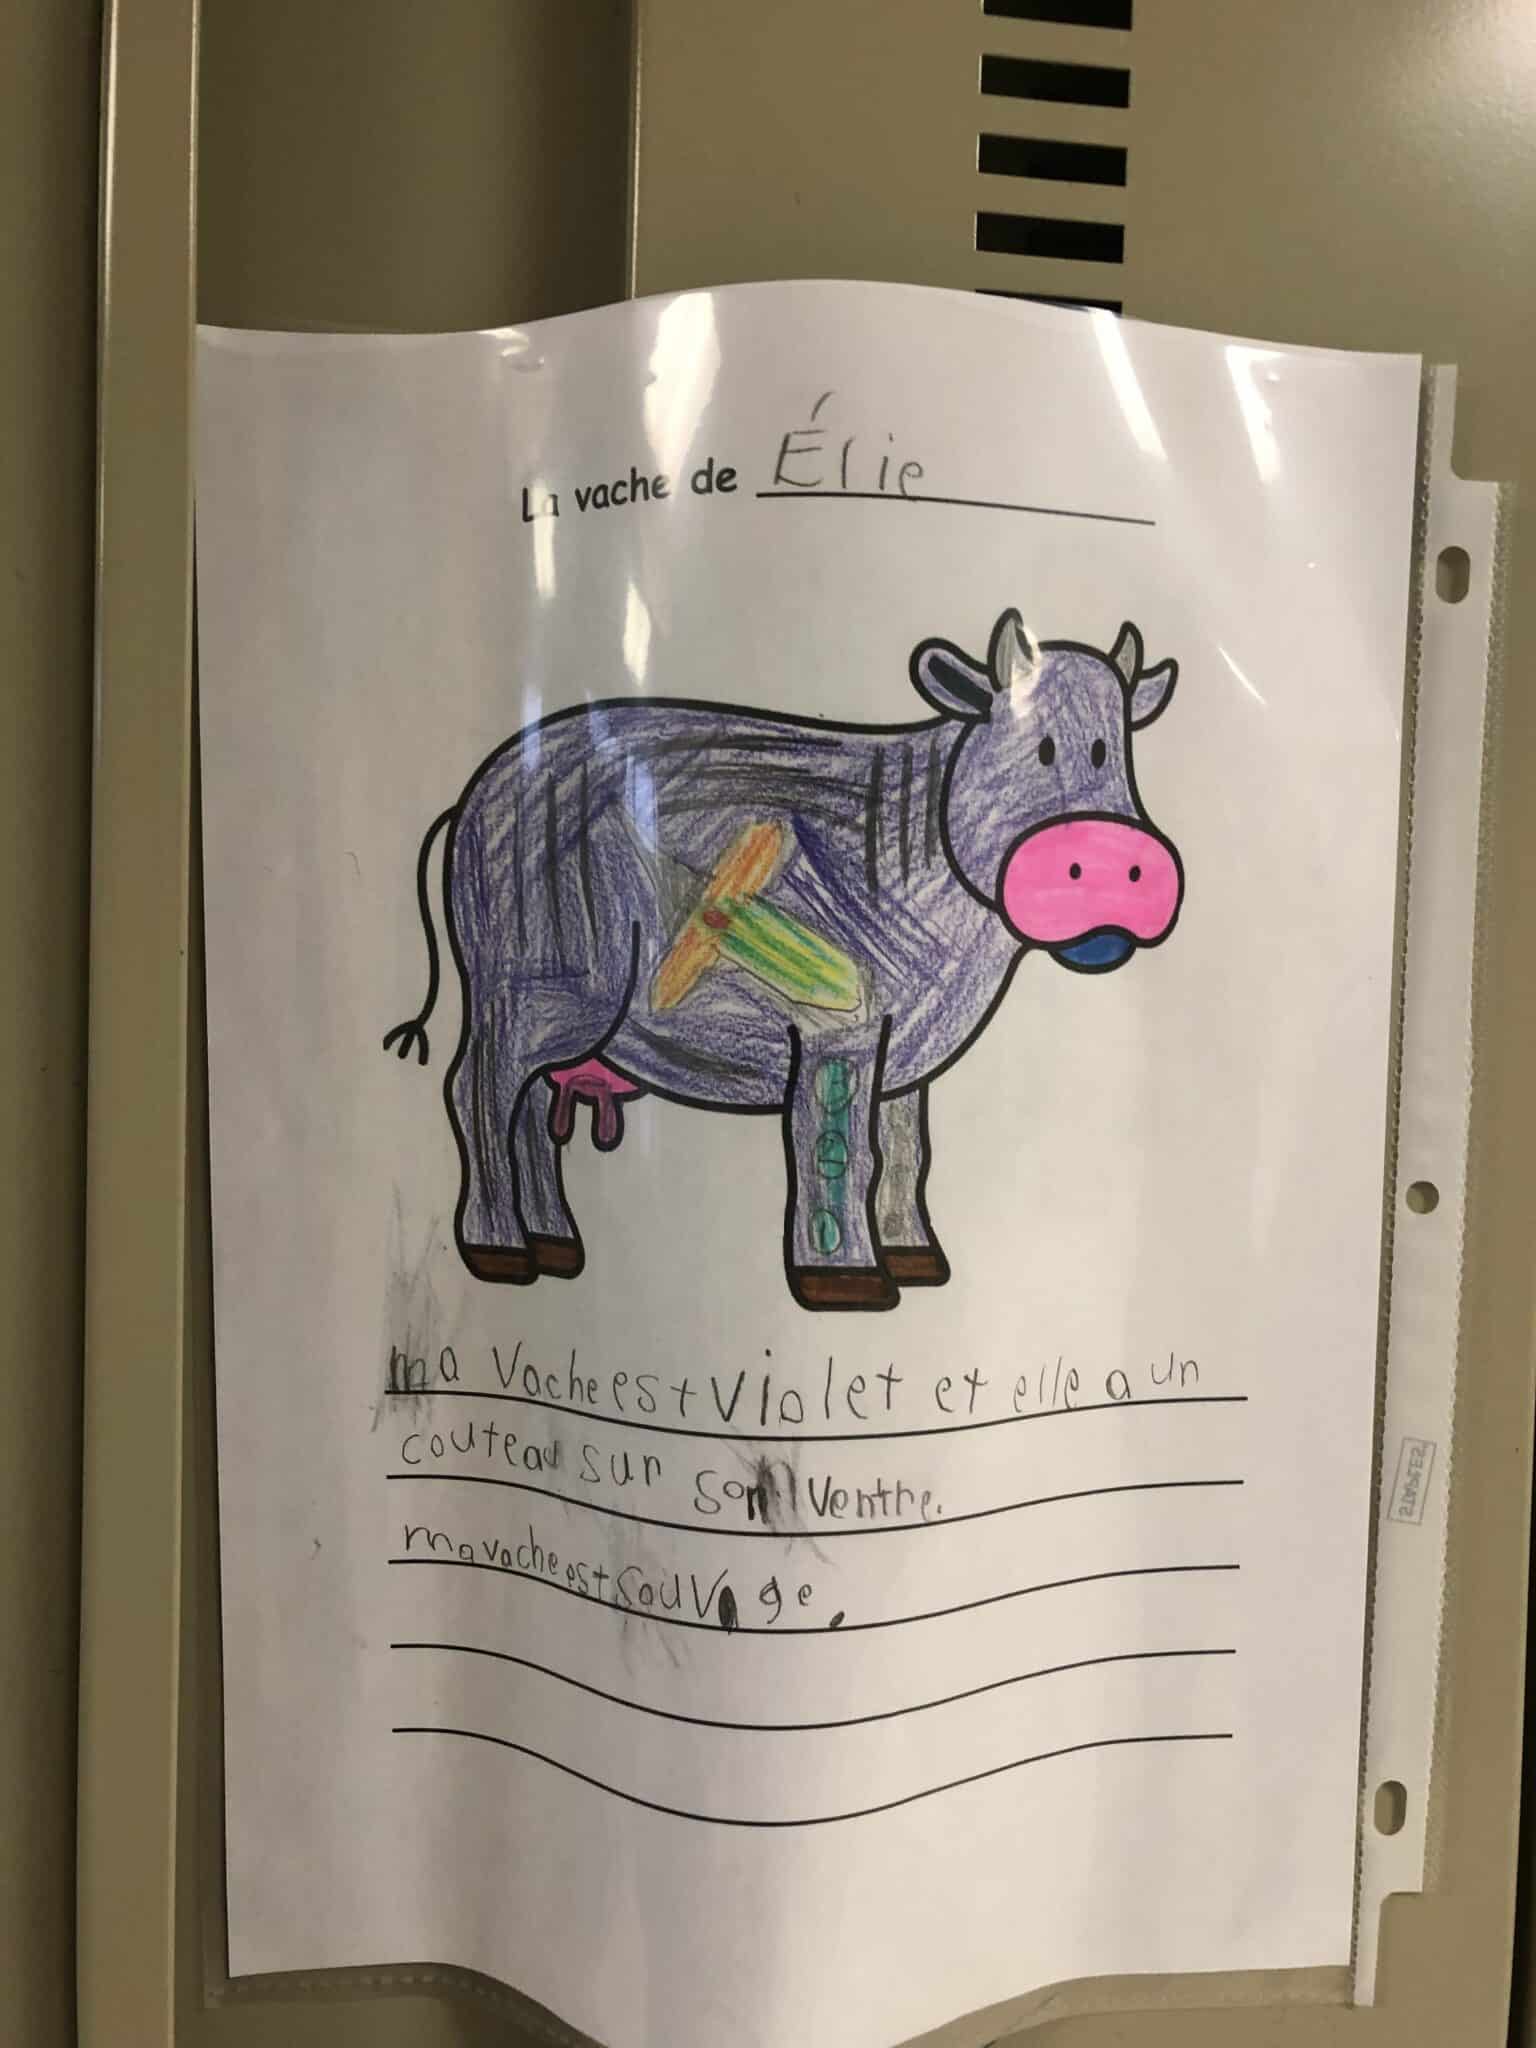 La vache de Élie
3
2
1
ma vache est violet et elle a un
couteau sur son ventre.
ma vache est souvage.